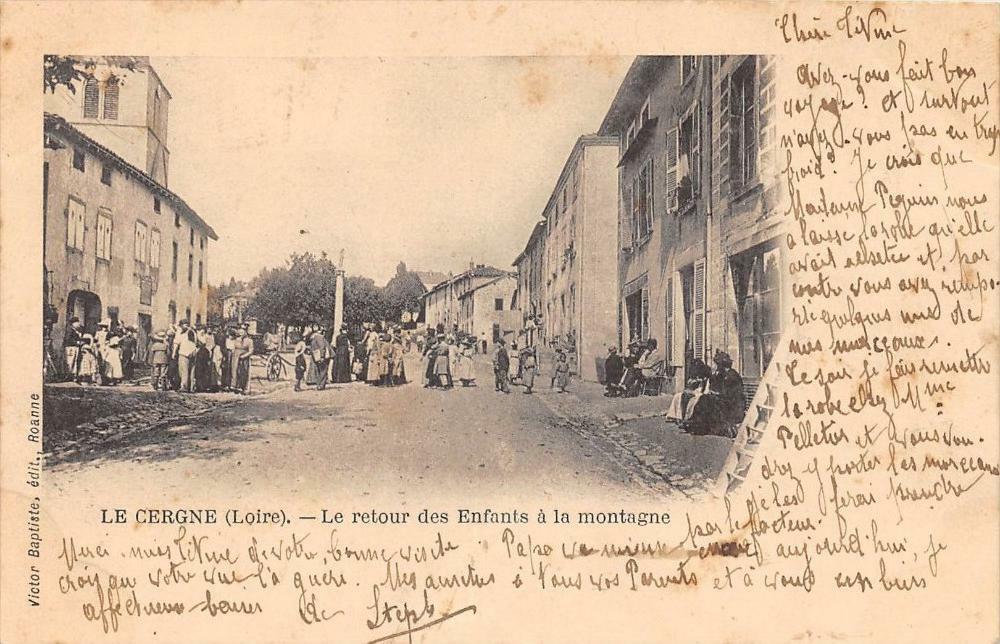 Chère
Avez-vous fait bon
voyage? et surtout
n'avez-vous pas eu trop
froid? Je crois que
Madame Pequin nous
a laissé la robe qu'elle
avait achetée et par
contre vous avez rempor-
té quelques uns de
nos morceaux.
Ce soir je fais remettre
la robe chez Mme
Pelletier et vous vou-
drez y porter les morceaux
je les ferai prendre
par le facteur.
LE CERGNE (Loire). — Le retour des Enfants à la montagne
Victor Baptiste, édit., Roanne
Merci de votre bonne visite. Papa va mieux aujourd'hui, je
crois que votre vue l'a guéri. Mes amitiés à Vous vos Parents et à vous
affectueux baiser de Steph